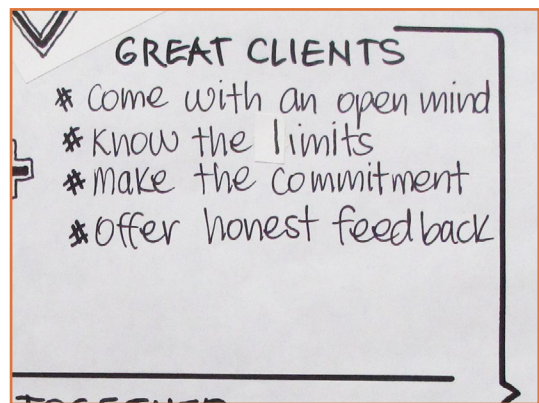 GREAT CLIENTS
# Come with an open mind
# Know the limits
# Make the Commitment
# Offer honest feedback
TOGETHER